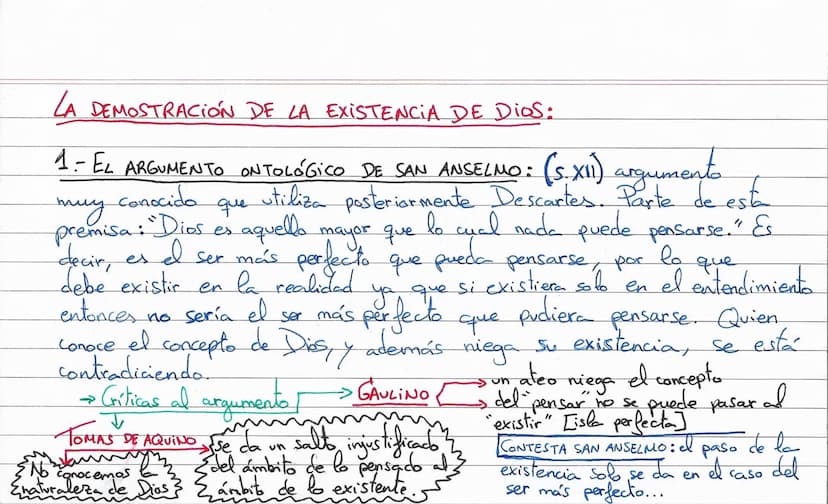 LA DEMOSTRACIÓN DE LA EXISTENCIA DE DIOS:
1.- EL ARGUMENTO ONTOLÓGICO DE SAN ANSELMO: (S. XII) argumento
muy conocido que utiliza posteriormente Descartes. Parte de esta
premisa: "Dios es aquello mayor que lo cual nada puede pensarse." Es
decir, es el ser más perfecto que pueda pensarse, por lo que
debe existir en la realidad ya que si existiera solo en el entendimiento
entonces no sería el ser más perfecto que pudiera pensarse. Quien
conoce el concepto de Dios, y además niega su existencia, se está
contradiciendo.
→ Críticas al argumento → GAULINO → un ateo niega el concepto
→ del "pensar" no se puede pasar al
"existir" [isla perfecta]
CONTESTA SAN ANSELMO: el paso de la
existencia solo se da en el caso del
ser más perfecto...
TOMAS DE AQUINO
No conocemos la
naturaleza de Dios
Se da un salto injustificado
del ámbito de lo pensado al
ámbito de lo existente.